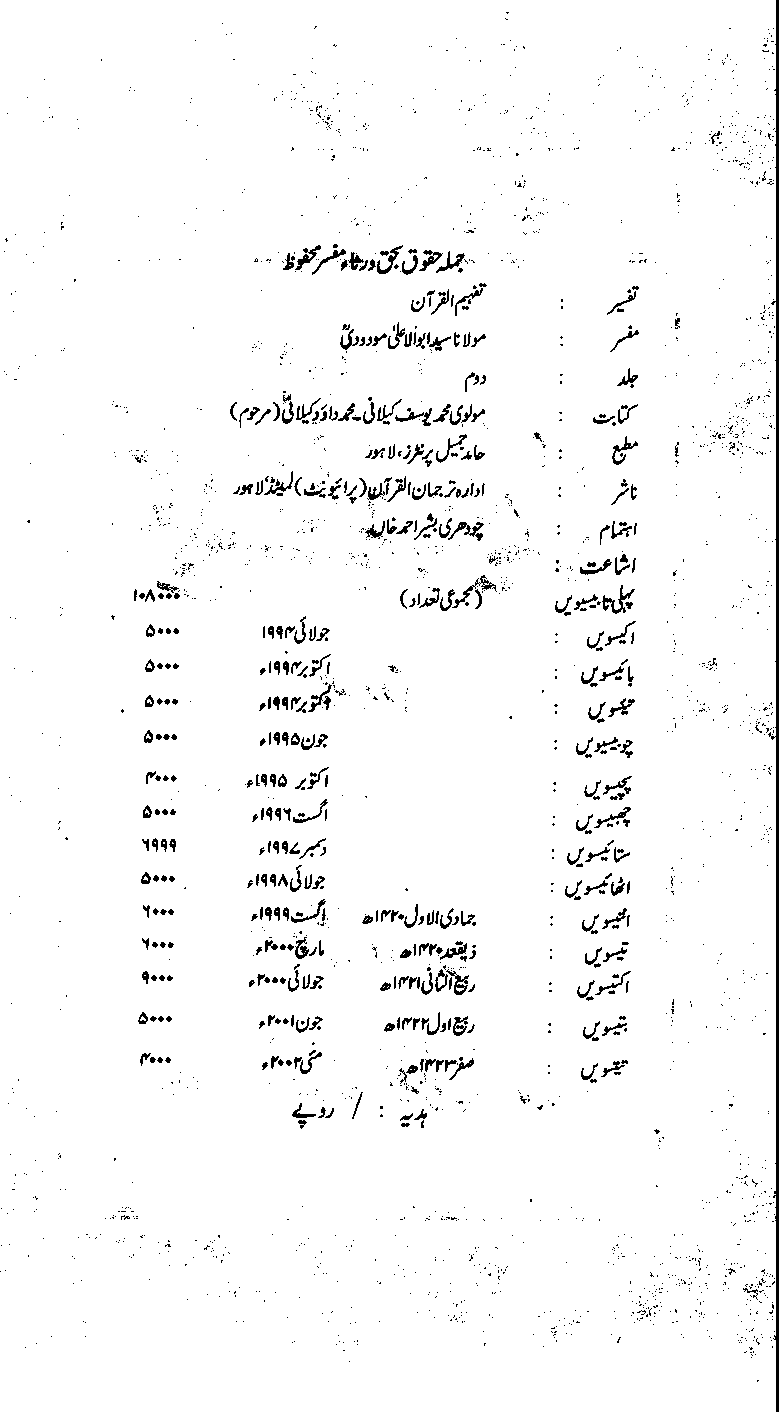 جملہ حقوق بحق ورثاء مفسر محفوظ
تفسیر : تفہیم القرآن
مفسر : مولانا سید ابوالاعلیٰ مودودیؒ
جلد : دوم
کتابت : مولوی محمد یوسف کیلانی۔ محمد داؤد کیلانیؒ (مرحوم)
مطبع : حامد جمیل پرنٹرز، لاہور
ناشر : ادارہ ترجمان القرآن (پرائیویٹ) لمیٹڈ لاہور
اہتمام : چودھری بشیر احمد خاں
اشاعت :
پہلی تا بیسویں (مجموعی تعداد) ۱۰۸۰۰۰
اکیسویں : جولائی ۱۹۹۴ ۵۰۰۰
بائیسویں : اکتوبر ۱۹۹۴ء ۵۰۰۰
تیئسویں : اکتوبر ۱۹۹۴ء ۵۰۰۰
چوبیسویں : جون ۱۹۹۵ء ۵۰۰۰
پچیسویں : اکتوبر ۱۹۹۵ء ۴۰۰۰
چھبیسویں : اگست ۱۹۹۶ء ۵۰۰۰
ستائیسویں : دسمبر ۱۹۹۷ء ۶۹۹۹
اٹھائیسویں : جولائی ۱۹۹۸ء ۵۰۰۰
انتیسویں : جمادی الاول ۱۴۲۰ھ اگست ۱۹۹۹ء ۶۰۰۰
تیسویں : ذیقعد ۱۴۲۰ھ مارچ ۲۰۰۰ء ۶۰۰۰
اکتیسویں : ربیع الثانی ۱۴۲۱ھ جولائی ۲۰۰۰ء ۹۰۰۰
بتیسویں : ربیع اول ۱۴۲۲ھ جون ۲۰۰۱ء ۵۰۰۰
تیتیسویں : صفر ۱۴۲۳ھ مئی ۲۰۰۲ء ۴۰۰۰
ہدیہ : / روپے